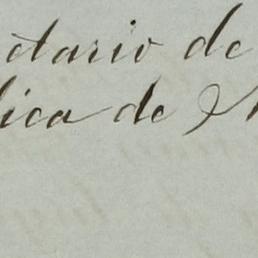 ctario de
lica de